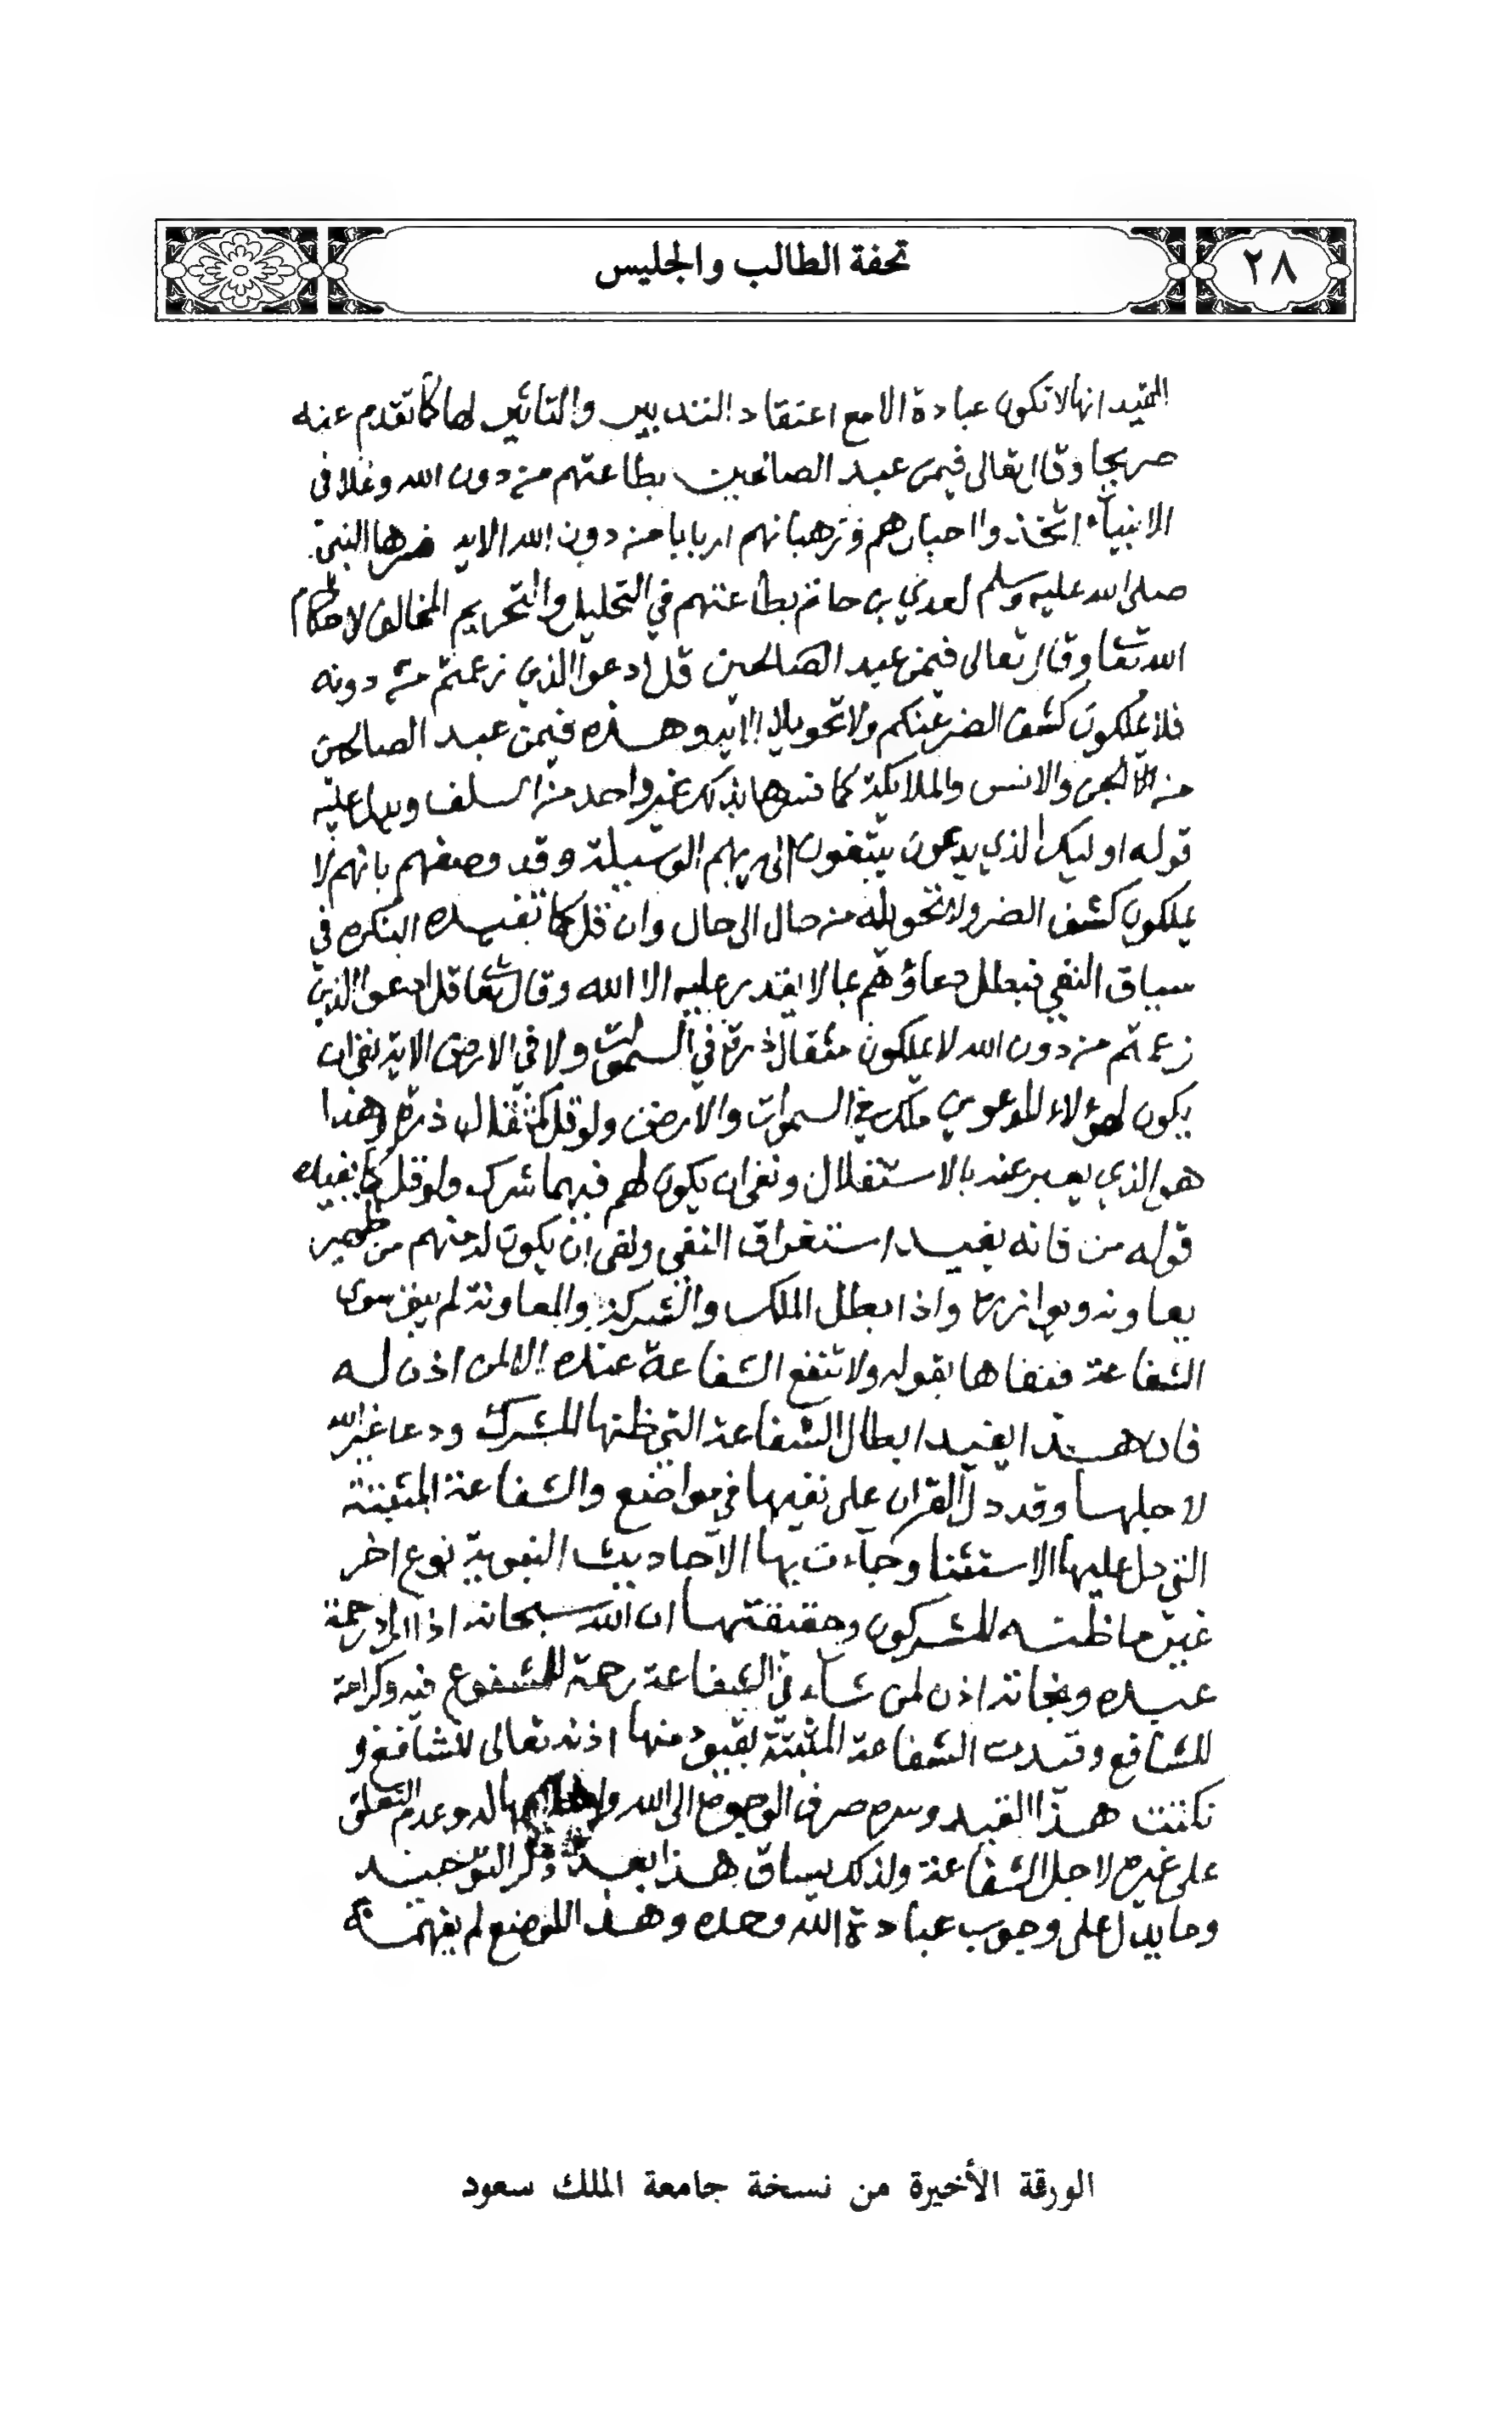 ٢٨
تحفة الطالب والجليس
القيد انها لا تكون عبادة الا مع اعتقاد التدبير والتاثير لها كما تقدم عنه
صريحا وقال تعالى فيمن عبد الصالحين بطاعتهم من دون الله وغلا في
الانبياء اتخذوا احبارهم ورهبانهم اربابا من دون الله الايه فسرها النبي
صلى الله عليه وسلم لعدي بن حاتم بطاعتهم في التحليل والتحريم المخالف لاحكام
الله تعا وقال تعالى فيمن عبد الصالحين قل ادعوا الذين زعمتم من دونه
فلا يملكون كشف الضر عنكم ولا تحويلا الايه وهذه فيمن عبد الصالحين
من الجن والانس والملايكة كما فسرها بذلك غير واحد من السلف ويدل عليه
قوله اوليك الذين يدعون يبتغون الى ربهم الوسيلة وقد وصفهم بانهم لا
يملكون كشف الضر ولا تحويله من حال الى حال وان قل كما تفيده النكره في
سياق النفي فبطل دعاؤهم بما لا يقدر عليه الا الله وقال تعا قل ادعوا الذين
زعمتم من دون الله لا يملكون مثقال ذرة في السموات ولا في الارض الاية نفى ان
يكون لهؤلاء المدعوين ملك في السموات والارض ولو قل كمثقال ذرة وهذا
هو الذي يعبر عنه بالاستقلال ونفى ان يكون لهم فيهما شرك ولو قل كما يفيده
قوله من فانه يفيد استغراق النفي ونفى ان يكون له منهم من ظهير
يعاونه ويوازره واذا بطل الملك والشركة والمعاونة لم يبق سوى
الشفاعة فنفاها بقوله ولا تنفع الشفاعة عنده الا لمن اذن له
فان هذا يفيد ابطال الشفاعة التي ظنها المشرك ودعا غير الله
لاجلها وقد دل القران على نفيها في مواضع والشفاعة المثبتة
التي دل عليها الاستثنا وجاءت بها الاحاديث النبوية نوع اخر
غير ما ظنه المشركون وحقيقتها ان الله سبحانه اذا اراد رحمة
عبده ونجاته اذن لمن شاء في الشفاعة رحمة للمشفوع فيه وكرامة
للشافع وقيدت الشفاعة المثبتة بقيود منها اذنه تعالى للشافع و
نكتت هذا القيد وسره صرف الوجوه الى الله له وعدم التعلق
على غيره لاجل الشفاعة ولذلك يساق هذا بعد ذكر التوحيد
وما يدل على وجوب عبادة الله وحده وهذا الموضع لم يفهمه
الورقة الأخيرة من نسخة جامعة الملك سعود